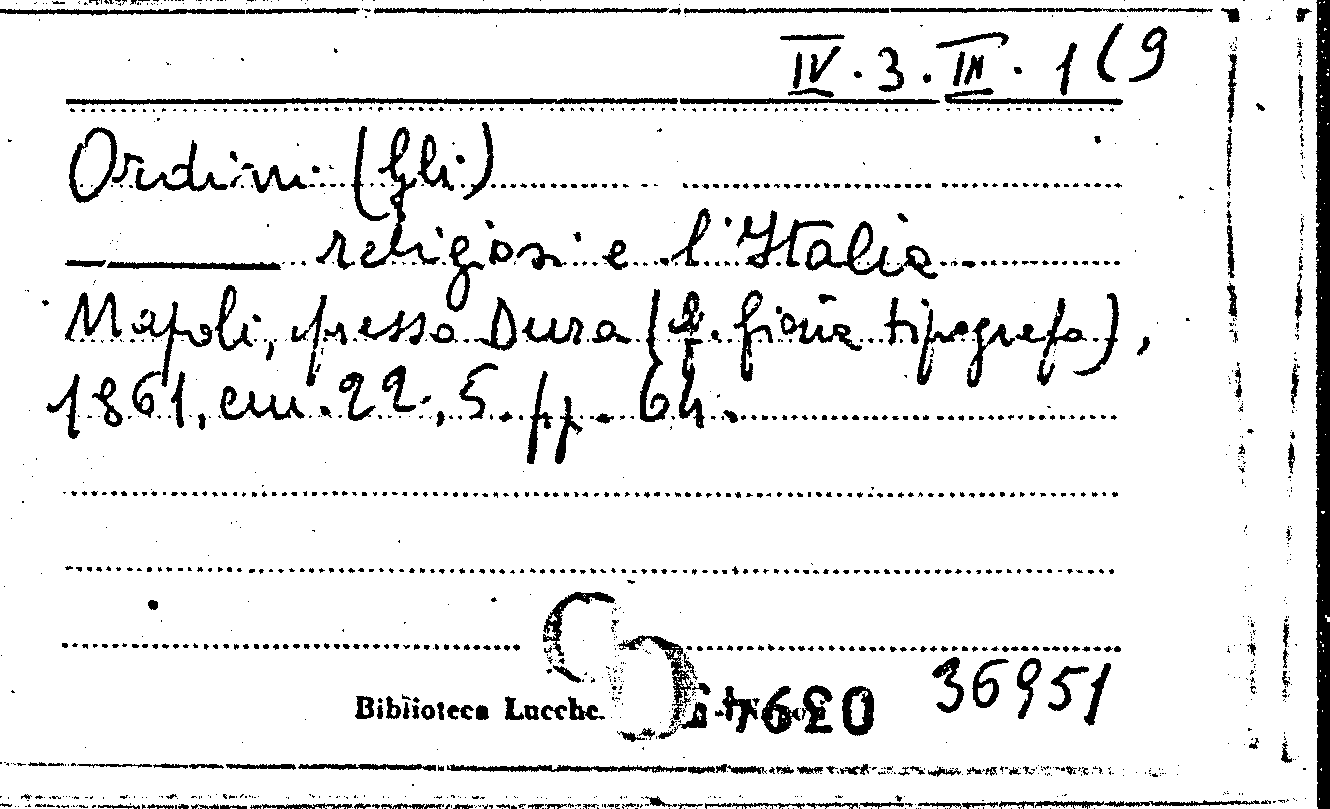 IV. 3. III. 1(9
Ordini (Gli)
religiosi e l'Italia.
Napoli, presso Dura (f. gioia tipografo),
1861, cm. 22,5. pp. 64.
Biblioteca Lucche
36951